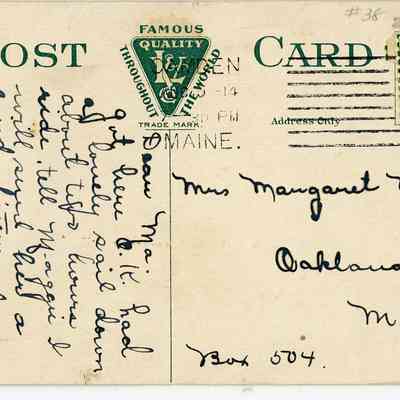 #38
POST CARD
FAMOUS
QUALITY
THROUGHOUT THE WORLD
TRADE MARK
CAMDEN
14
PM
MAINE.
Address Only
Dear Ma
got here O.K. had
a lovely sail down
about two hours
ride tell Maggie I
will send her
a
Mrs Margaret
Oakland
M
Box 504.